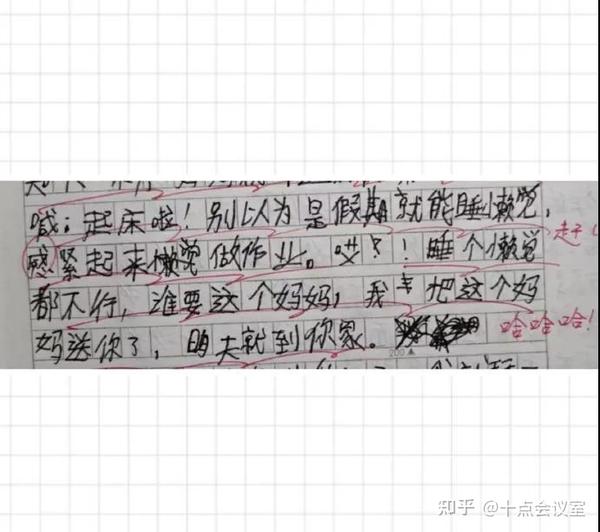 喊：起床啦！别以为是假期就能睡懒觉，
感紧起来懒觉做作业。哎？！睡个懒觉 赶
都不行，谁要这个妈妈，我 把这个妈
妈送你了，明天就到你家。 哈哈哈！
200
知乎 @十点会议室